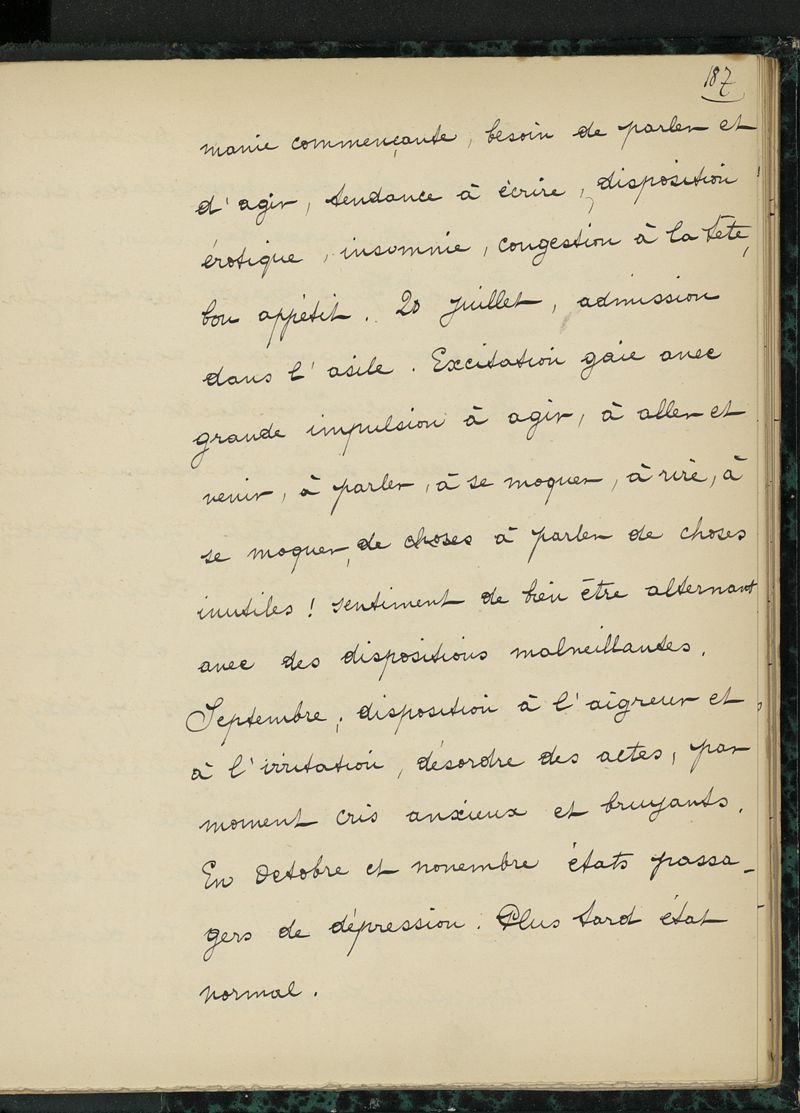 187
manie commençante, besoin de parler et
d'agir, tendance à écrire, disposition
érotique, insomnie, congestion à la tête,
bon appétit. 20 juillet, admission
dans l'asile. Excitation gaie avec
grande impulsion à agir, à aller et
venir, à parler, à se moquer, à rire, à
se moquer, de choses à parler de choses
inutiles ! sentiment de bien être alternant
avec des dispositions malveillantes.
Septembre ; disposition à l'aigreur et
à l'irritation, désordre des actes, par
moment cris anxieux et bruyants.
En Octobre et novembre états passa-
gers de dépression. Plus tard état
normal.